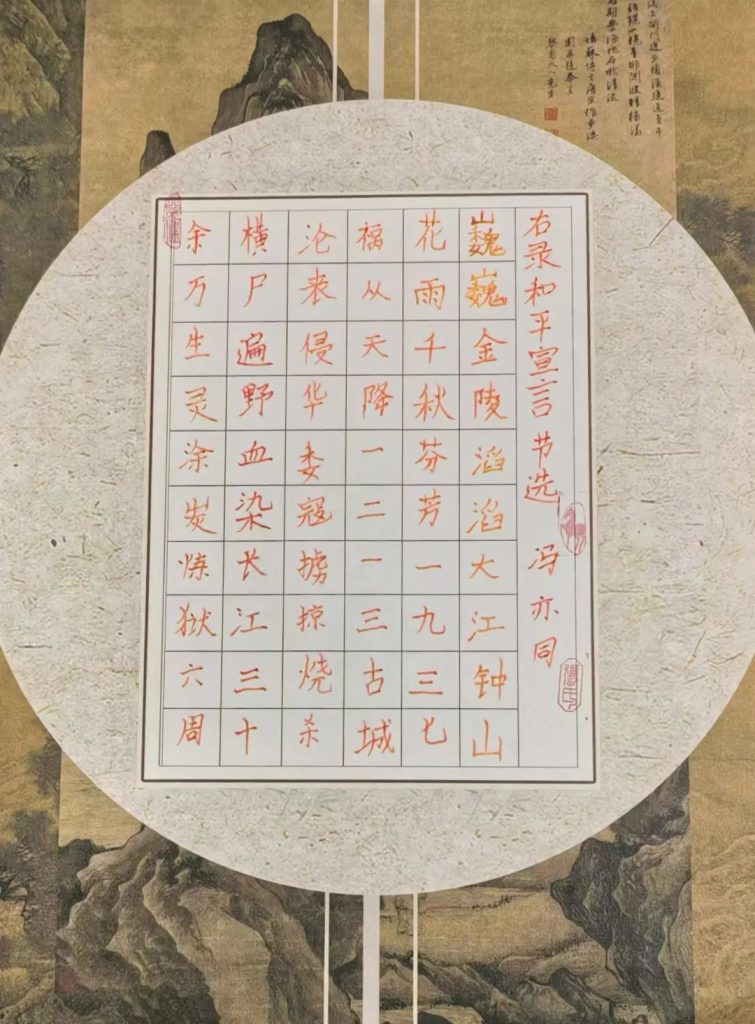 右录和平宣言 节选 冯亦同
巍巍金陵滔滔大江钟山
花雨千秋芬芳一九三七
祸从天降一二一三古城
沦丧侵华委寇掳掠烧杀
横尸遍野血染长江三十
余万生灵涂炭炼狱六周